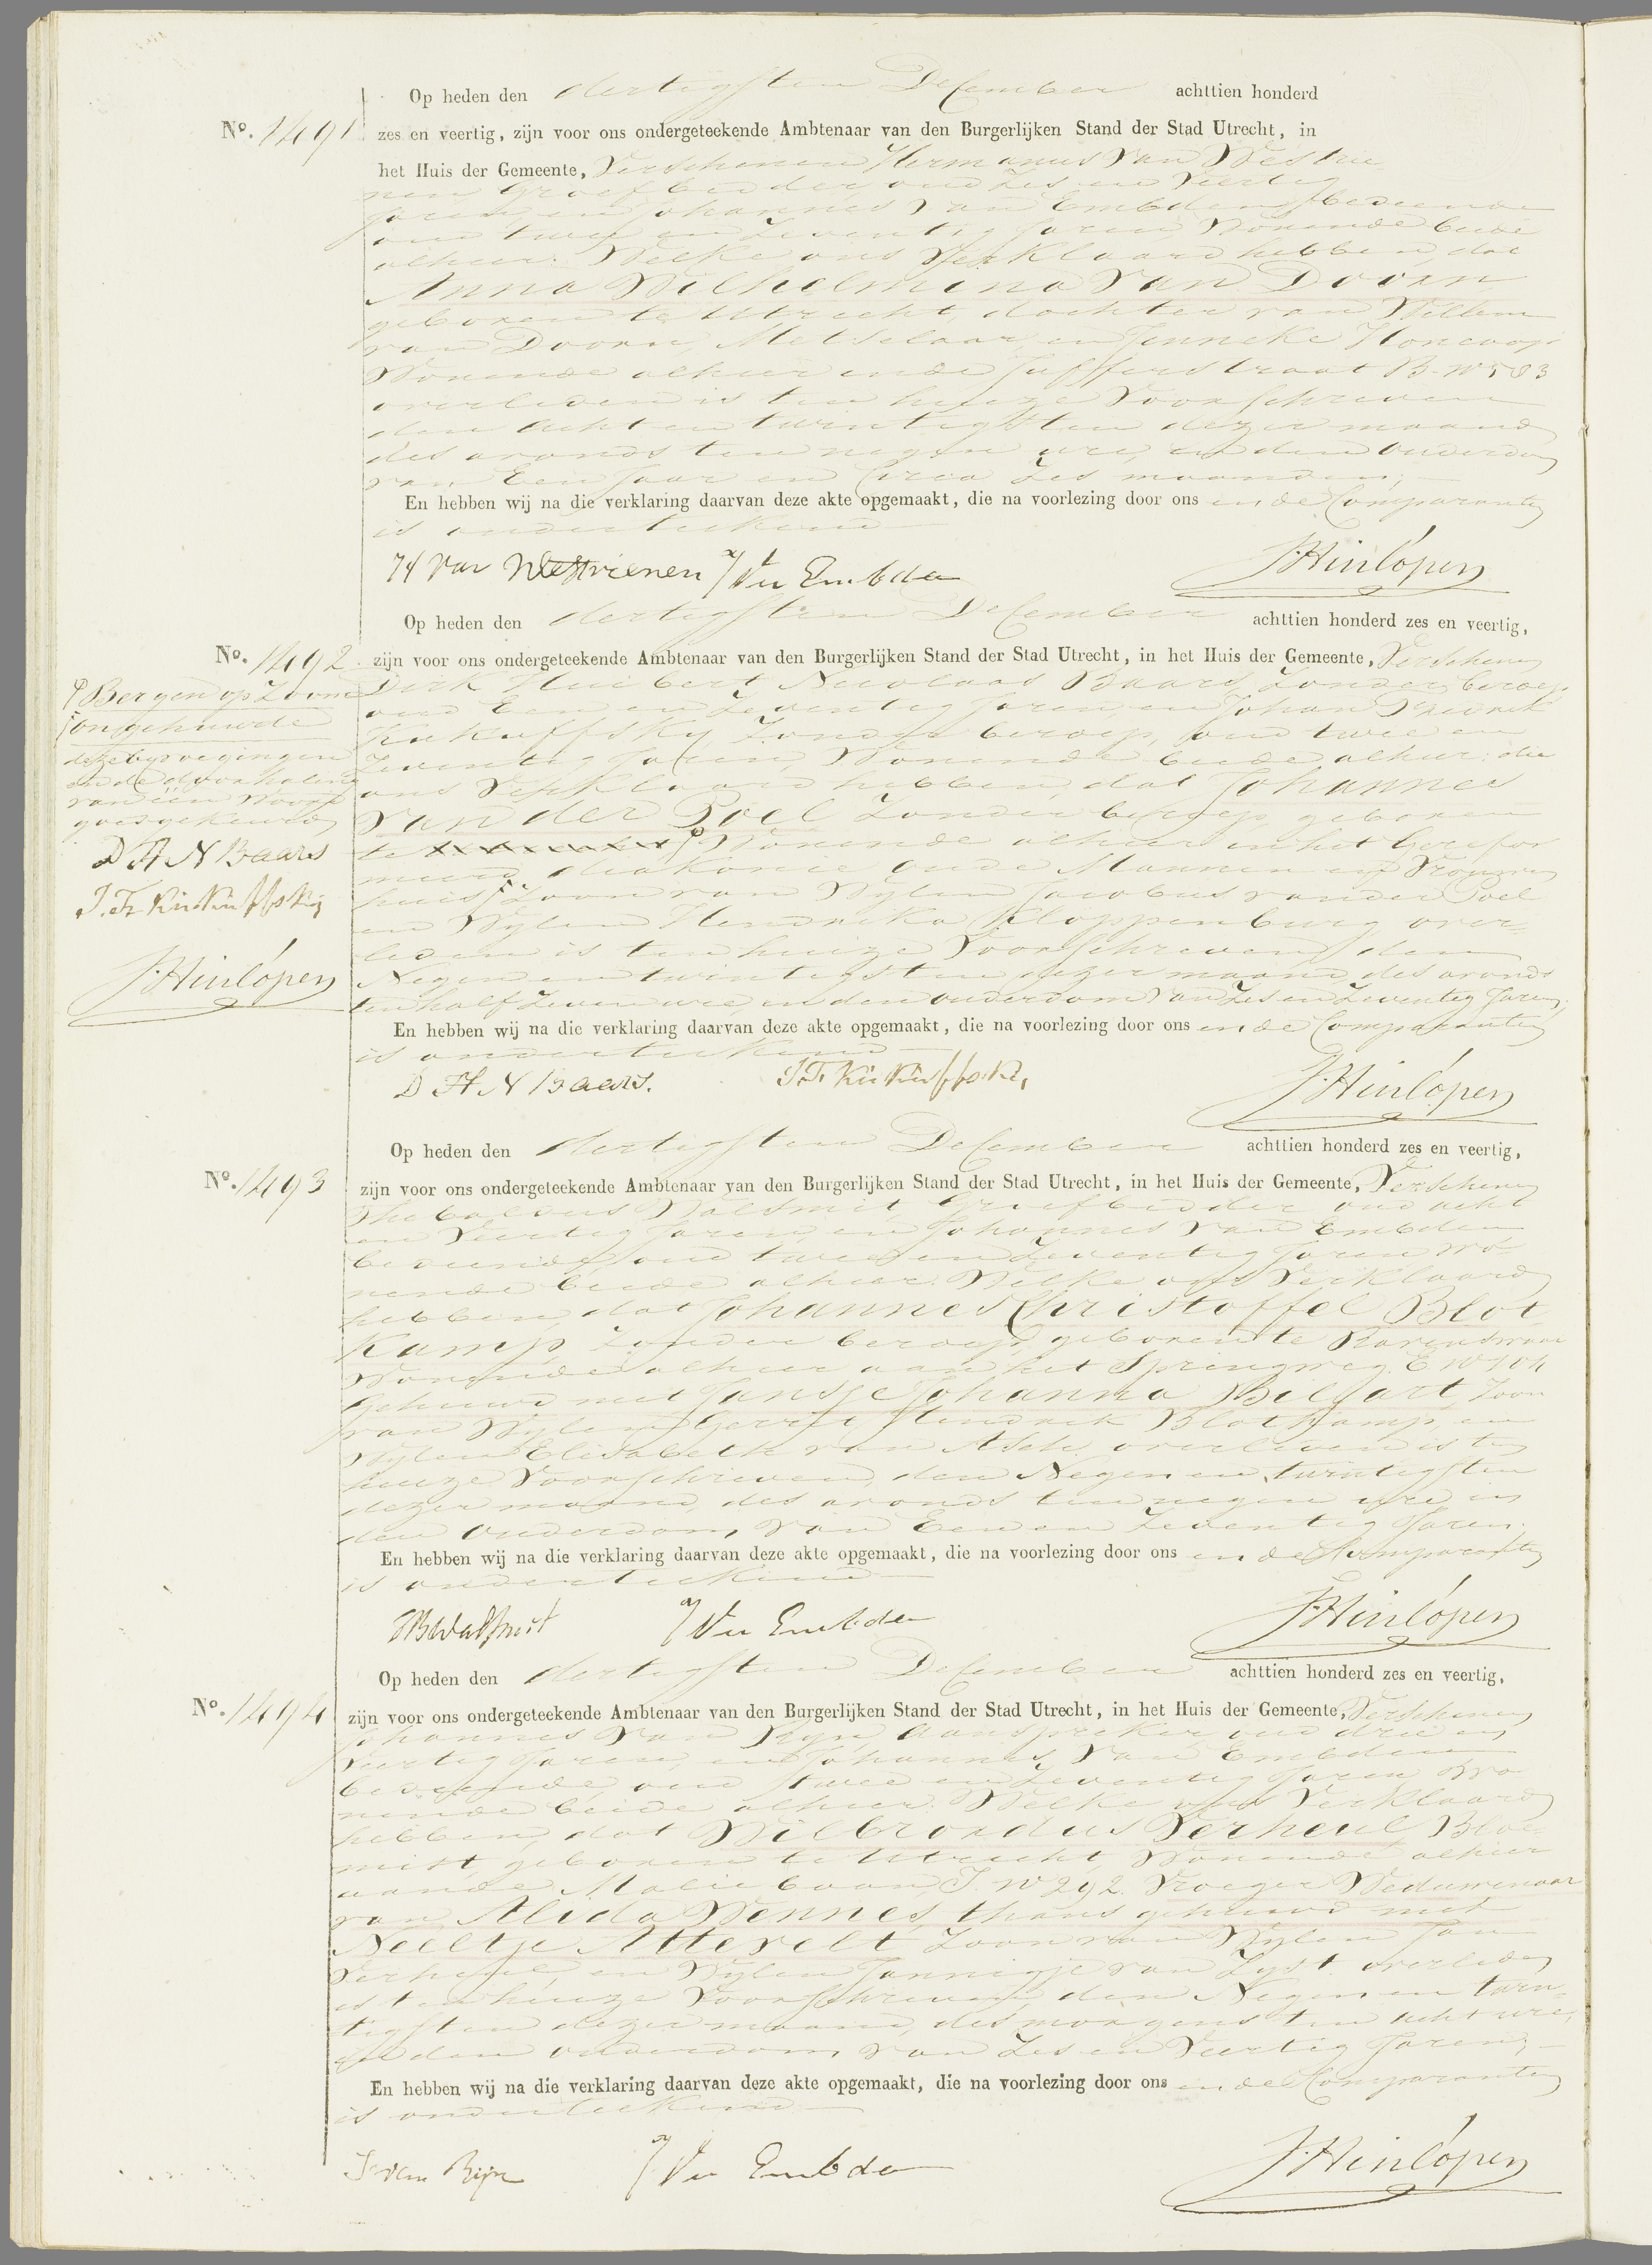 Op heden den dertigsten December achttien honderd
No. 1491 zes en veertig, zijn voor ons ondergeteekende Ambtenaar van den Burgerlijken Stand der Stad Utrecht, in
het Huis der Gemeente, Verschenen Hermanus van Westrie-
nen Groefbidder oud Zes en Veertig
Jaren, en Johannes van Embden, bediende
oud twee en Zeventig Jaren Wonende beide
alhier. Welke ons Verklaard hebben, dat
Anna Wilhelmina van Doorn
geboren te Utrecht, dochter van Willem
van Doorn, Metselaar, en Jenneke Honcoop
Wonende alhier in de Jufferstraat B. No 583
overleden is ten huize Voorschreven
den acht en twintigsten dezer maand
des avonds ten negen ure, in den ouderdom
van Een Jaar en Circa Zes maanden,
En hebben wij na die verklaring daarvan deze akte opgemaakt, die na voorlezing door ons en de Comparanten
is onderteekend
H van Westrienen J Van Embden J. Hinlópen
Op heden den dertigsten December achttien honderd zes en veertig,
No. 1492 zijn voor ons ondergeteekende Ambtenaar van den Burgerlijken Stand der Stad Utrecht, in het Huis der Gemeente, Verschenen
Dirk Huibert Nicolaas Baars, Zonder beroep
oud Een en Zeventig Jaren, en Johan Fredrik
Kukuffsky, Zonder beroep, oud twee en
Zeventig Jaren Wonende beide alhier: die
ons Verklaard hebben, dat Johannes
van der Poel Zonder beroep, geboren
te Wonende alhier in het Gerefor
meerd diakonie Oude Mannen en Vrouwen
huis, Zoon van Wylen Jacobus van der Poel
en Wylen Hendrika Kloppenburg, over-
leden is ten huize Voorschreven den
Negen en twintigsten dezer maand, des avonds
ten half Zeven ure, in den ouderdom van Zes en Zeventig Jaren,
En hebben wij na die verklaring daarvan deze akte opgemaakt, die na voorlezing door ons en de Comparanten
is onderteekend
D H N Baars. J. F. Kukuffsky J. Hinlópen
Bergen op Zoom
ongehuwde
deze byvoegingen
en de doorhaling
van één woord
goedgekeurd
D H N Baars
J. F. Kukuffsky
J. Hinlópen
Op heden den dertigsten December achttien honderd zes en veertig,
No. 1493 zijn voor ons ondergeteekende Ambtenaar van den Burgerlijken Stand der Stad Utrecht, in het Huis der Gemeente, Verschenen
Thebaldus Walsmit, Groefbidder oud acht
en Veertig Jaren, en Johannes van Embden
bediende, oud twee en Zeventig Jaren wo-
nende beide alhier. Welke ons Verklaard
hebben, dat Johannes Christoffel Blot
kamp, Zonder beroep, geboren te Ravenswaai
Wonende alhier aan het Springweg E No 404
Gehuwd met Jansje Johanna Biljart, Zoon
van Wylen Gerrit Hendrik Blotkamp, en
Wylen Elisabeth van Asch, overleden is ten
huize Voorschreven, den Negen en twintigsten
dezer maand, des avonds ten negen ure, in
den ouderdom van Een en Zeventig Jaren.
En hebben wij na die verklaring daarvan deze akte opgemaakt, die na voorlezing door ons en de Comparanten
is onderteekend
J Van Embden J. Hinlópen
Op heden den dertigsten December achttien honderd zes en veertig,
No. 1494 zijn voor ons ondergeteekende Ambtenaar van den Burgerlijken Stand der Stad Utrecht, in het Huis der Gemeente, Verschenen
Johannes van Ryn, Aanspreker, oud drie en
Veertig Jaren, en Johannes van Embden
bediende, oud twee en Zeventig Jaren Wo-
nende beide alhier. Welke ons Verklaard
hebben, dat Wilbrordus Verheul Bloe-
mist, geboren te Utrecht, Wonende alhier
aan de Maliebaan J. No 292. Vroeger Weduwenaar
van Alida Wennes, thans gehuwd met
Neeltje Atteveld Zoon van Wylen Jan
Verheul, en Wylen Jannigje van Zyst. overleden
is ten huize Voorschreven, den Negen en twin-
tigsten dezer maand, des morgens ten acht ure,
in den ouderdom van Zes en Veertig Jaren,
En hebben wij na die verklaring daarvan deze akte opgemaakt, die na voorlezing door ons en de Comparanten
is onderteekend
J van Rijn J Van Embden J. Hinlópen